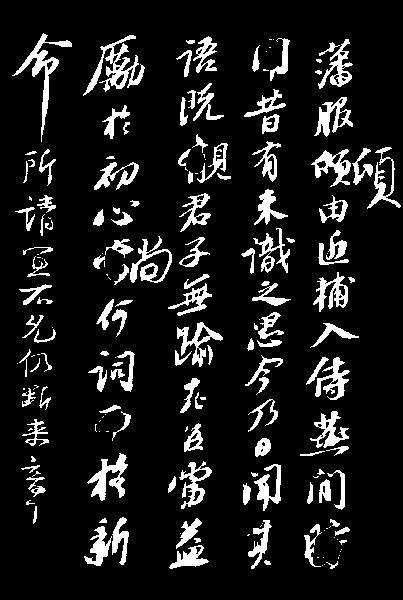 藩服頃由近補入侍燕間
頃
昔有未識之思今乃日聞其
語既觀君子無踰老臣當益
勵於初心尚何詞而於新
命所請宜不允仍断来章